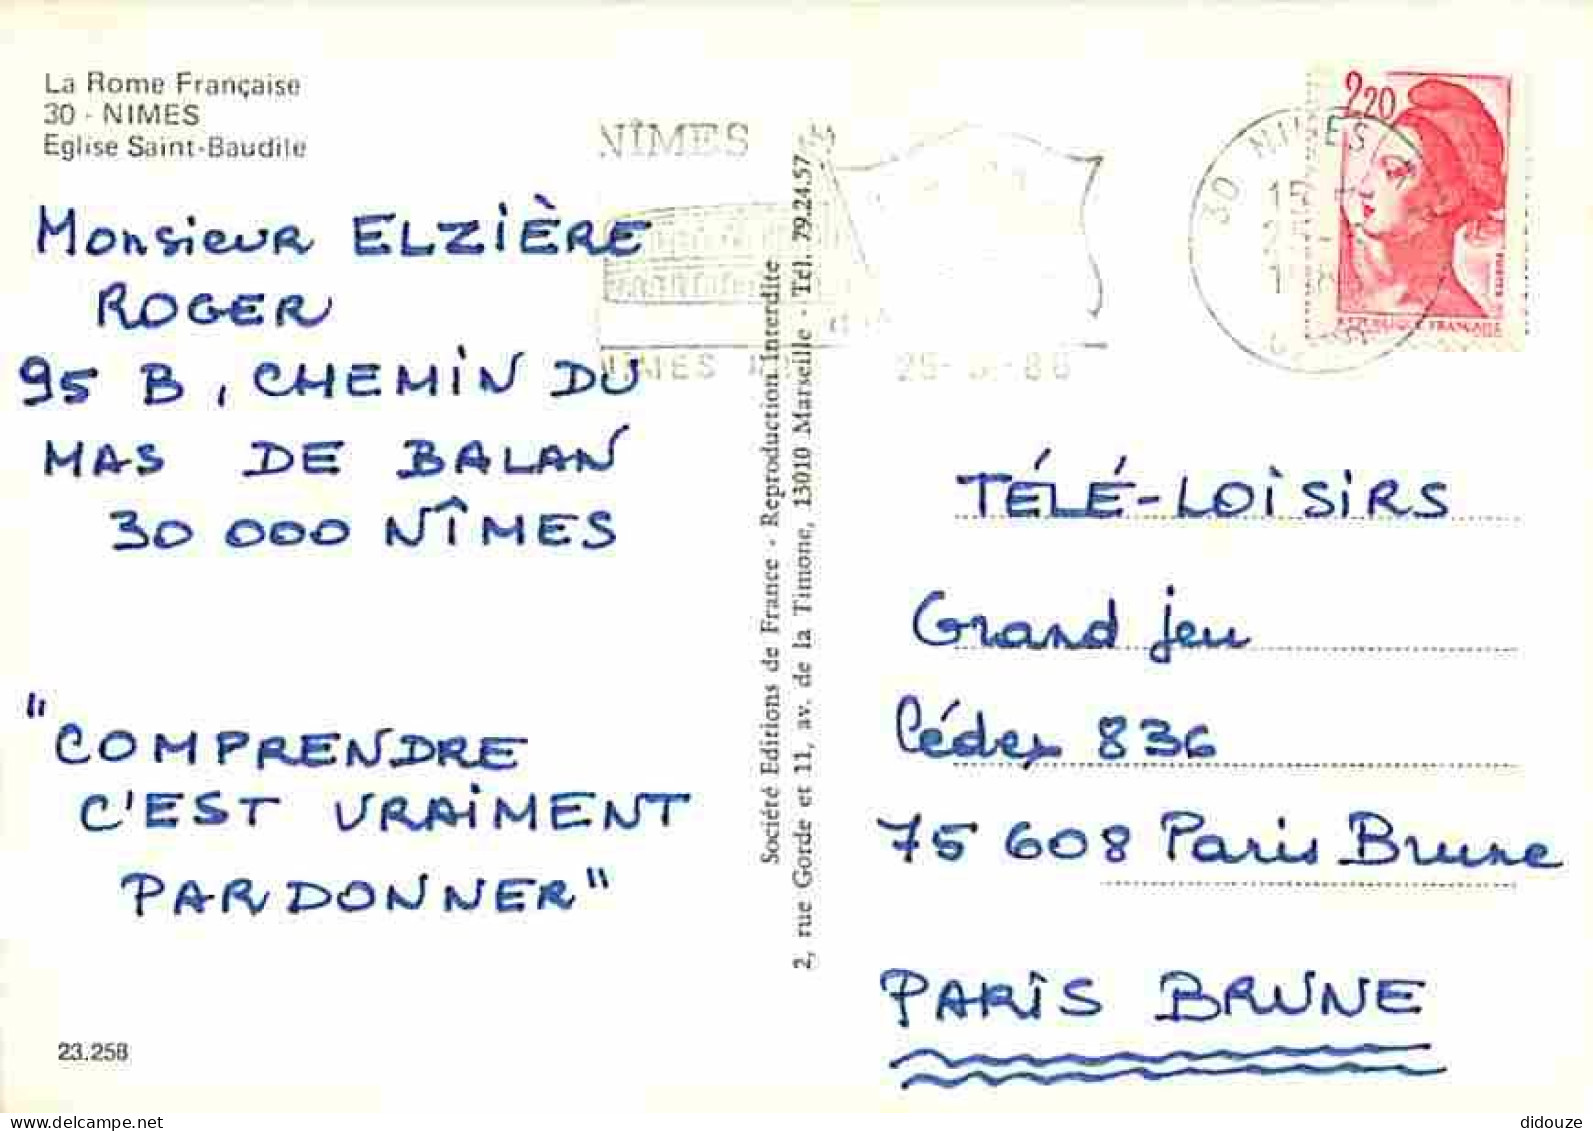 La Rome Française
30 - NIMES
Eglise Saint-Baudile
Monsieur ELZIÈRE
ROGER
95 B, CHEMIN DU
MAS DE BALAN
30 000 NÎMES
"COMPRENDRE
C'EST VRAIMENT
PARDONNER"
23.258
Société Editions de France - Reproduction Interdite
2, rue Gorde et 11, av. de la Timone, 13010 Marseille - Tél. 79.24.57
NÎMES
NIMES
30 NIMES
2,20
REPUBLIQUE FRANÇAISE
TÉLÉ-LOISIRS
Grand jeu
Cédex 836
75 608 Paris Brune
PARIS BRUNE
delcampe.net
didouze